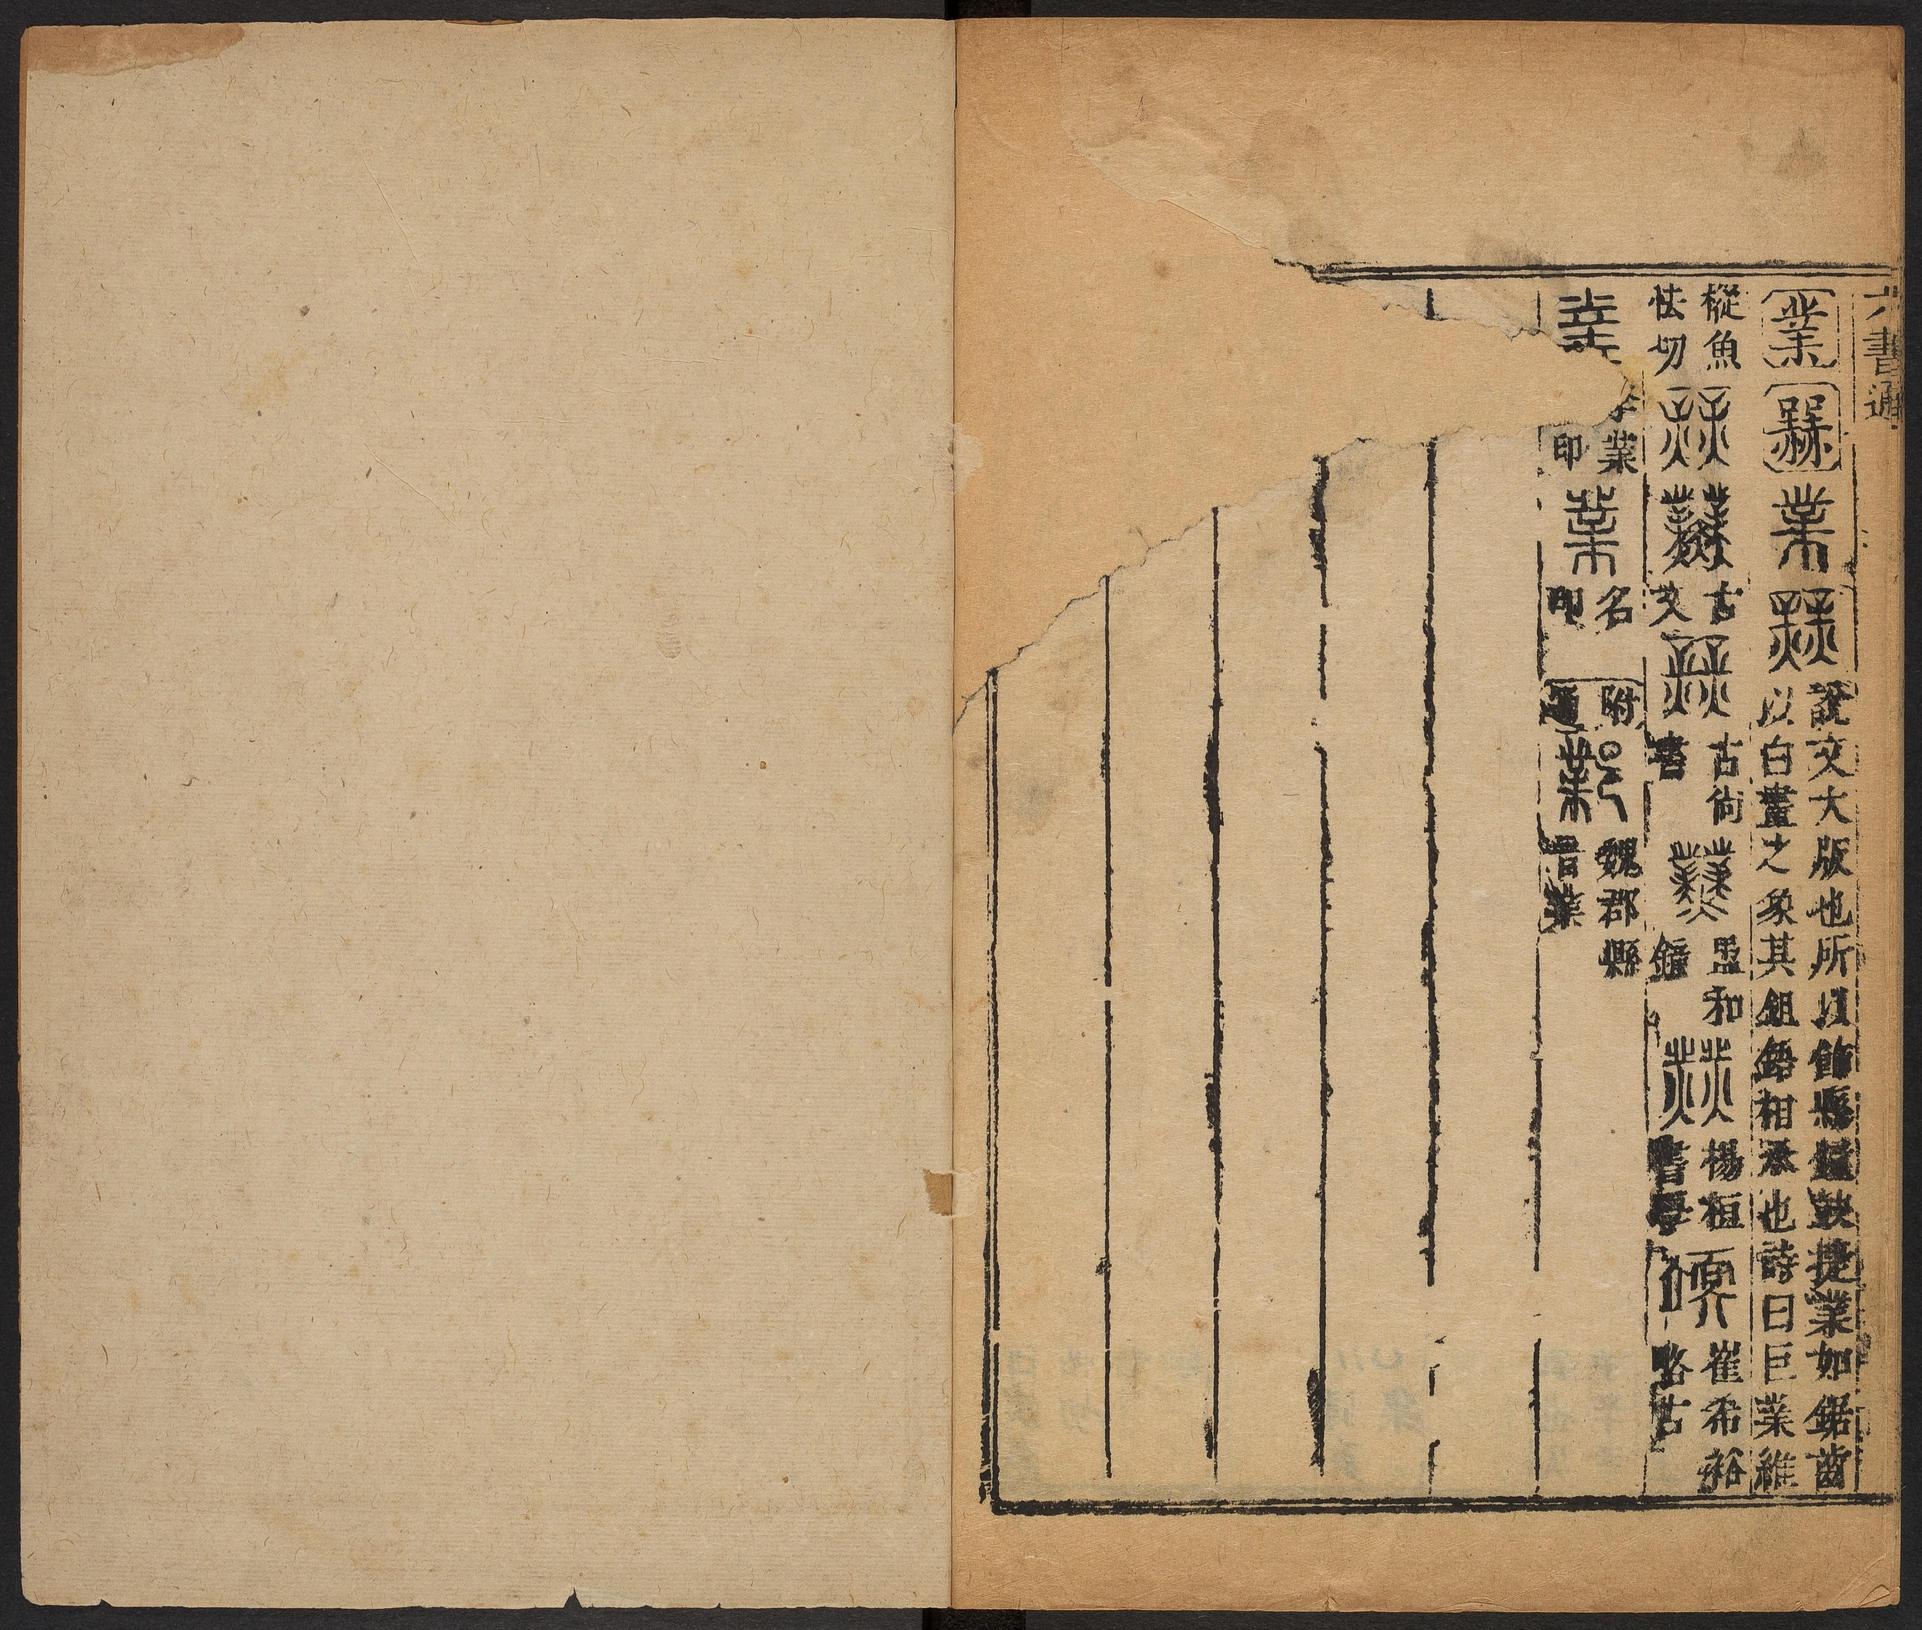 六書通
業 業 說文大版也所以飾縣鐘鼓捷業如鋸齒
以白畫之象其鉏鋙相承也詩曰巨業維
樅魚
怯切
古
文
古尚
書
盄和
鐘
楊桓
書學
崔希裕
略古
業
印
名
印
附
通
魏郡縣
晋業